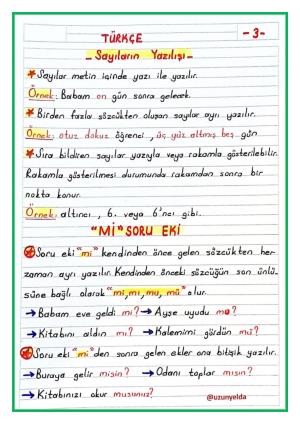 TÜRKÇE
-3-
- Sayıların Yazılışı -
* Sayılar metin içinde yazı ile yazılır.
Örnek: Babam on gün sonra gelecek.
* Birden fazla sözcükten oluşan sayılar ayrı yazılır.
Örnek: otuz dokuz öğrenci, üç yüz altmış beş gün
* Sıra bildiren sayılar yazıyla veya rakamla gösterilebilir.
Rakamla gösterilmesi durumunda rakamdan sonra bir
nokta konur.
Örnek: altıncı, 6. veya 6'ncı gibi.
"Mİ" SORU EKİ
* Soru eki "mi" kendinden önce gelen sözcükten her
zaman ayrı yazılır. Kendinden önceki sözcüğün son ünlü-
süne bağlı olarak "mi, mı, mu, mü" olur.
→ Babam eve geldi mi? → Ayşe uyudu mu?
→ Kitabını aldın mı? → Kalemimi gördün mü?
* Soru eki "mi" den sonra gelen ekler ona bitişik yazılır.
→ Buraya gelir misin? → Odanı toplar mısın?
→ Kitabınızı okur musunuz?
@uzunyelda